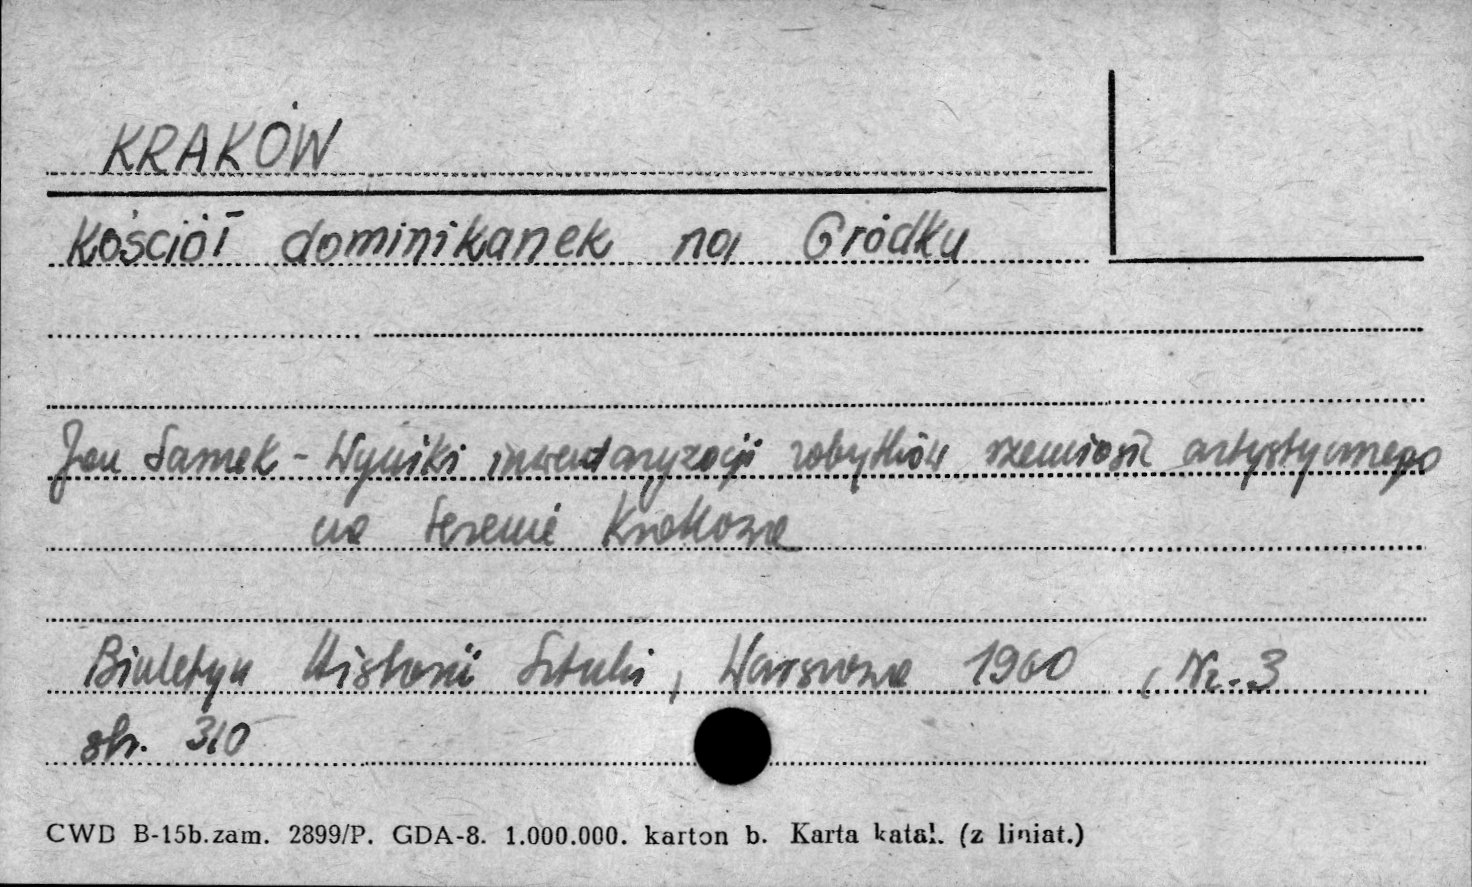 KRAKÓW
Kościół dominikanek na Gródku
Jan Samek - Wyniki inwentaryzacji zabytków rzemiosł artystycznego
na terenie Krakowa
Biuletyn Historii Sztuki, Warszawa 1960, Nr. 3
str. 310
CWD B-15b.zam. 2899/P. GDA-8. 1.000.000. karton b. Karta katal. (z liniat.)